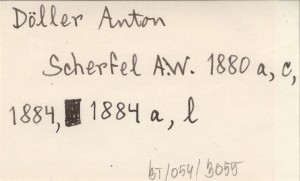 Döller Anton
Scherfel A.W. 1880 a, c,
1884, 1884 a, l
BT/054/3055